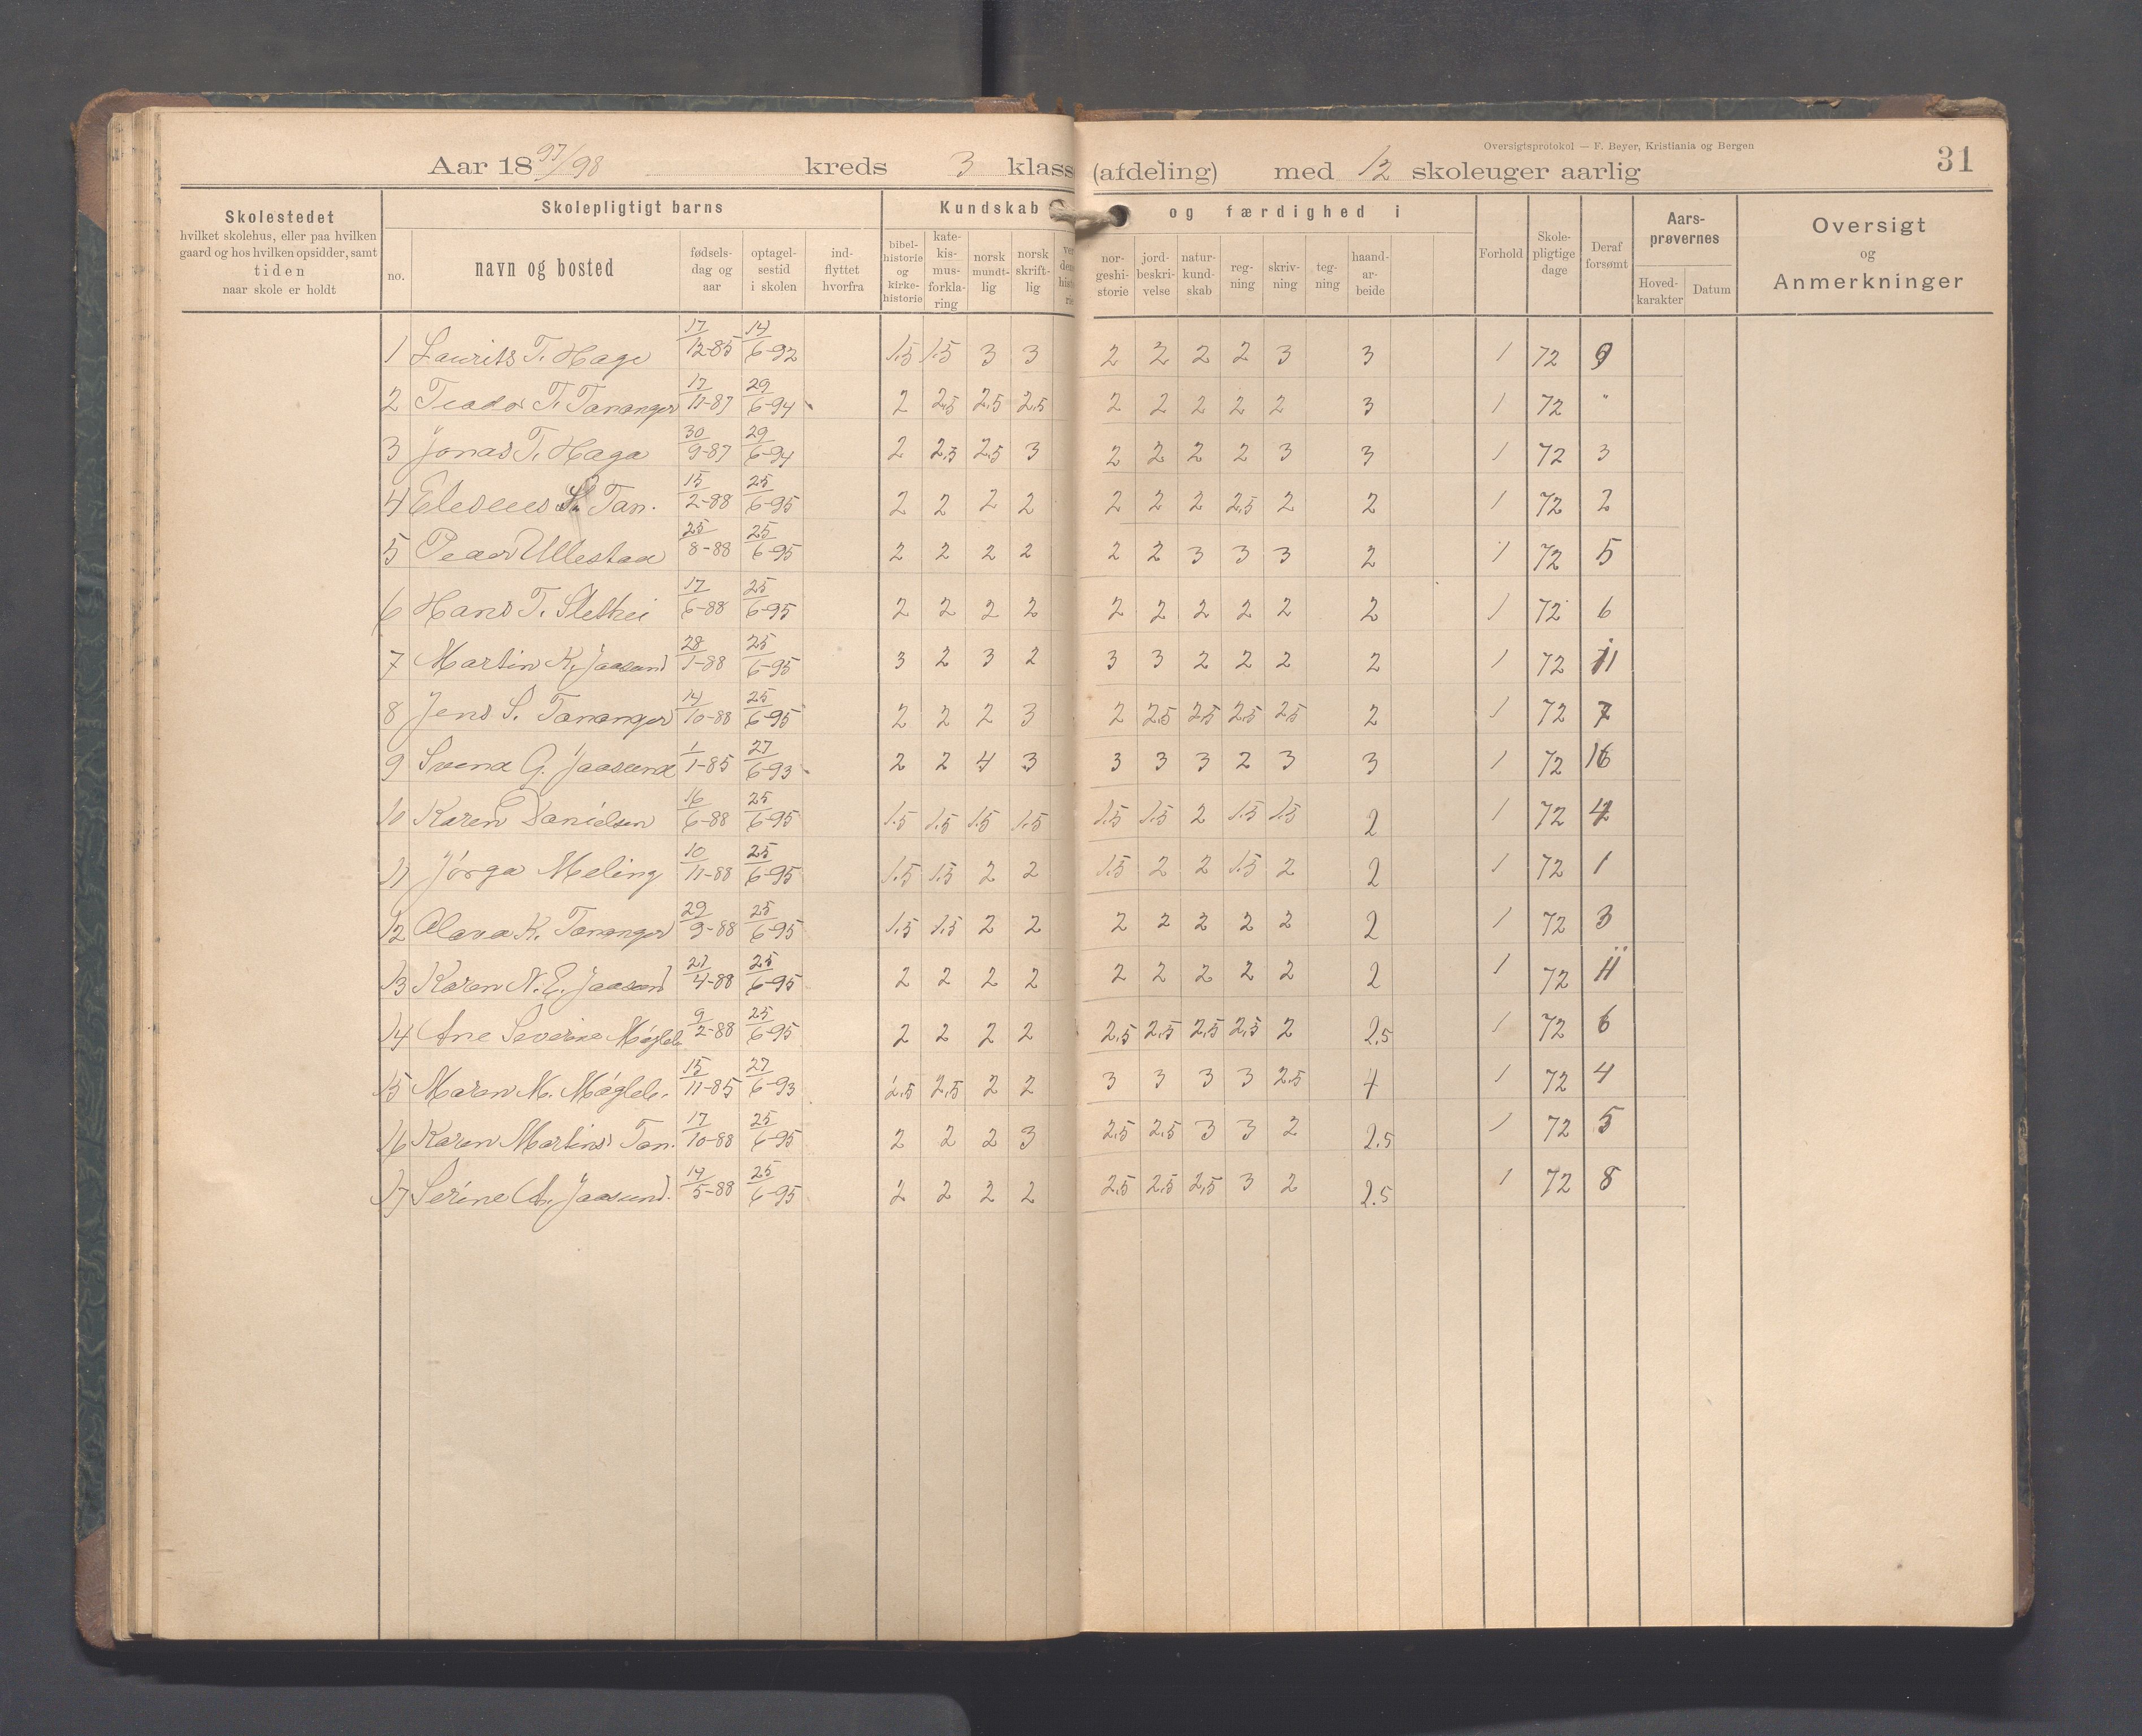 Oversigtsprotokol — F. Beyer, Kristiania og Bergen
Aar 1897/98 kreds 3 klasse (afdeling) med 12 skoleuger aarlig 31
Skolestedet
hvilket skolehus, eller paa hvilken
gaard og hos hvilken opsidder, samt
tiden
naar skole er holdt
Skolepligtigt barns
no.
navn og bosted
fødsels-
dag og
aar
optagel-
sestid
i skolen
ind-
flyttet
hvorfra
Kundskab og færdighed i
bibel-
historie
og
kirke-
historie
kate-
kis-
mus-
forkla-
ring
norsk
mundt-
lig
norsk
skrift-
lig
nor-
geshi-
storie
jord-
beskri-
velse
natur-
kund-
skab
reg-
ning
skriv-
ning
teg-
ning
haand-
ar-
beide
Forhold
Skole-
pligtige
dage
Deraf
forsømt
Aars-
prøvernes
Hoved-
karakter
Datum
Oversigt
og
Anmerkninger
1 Laurits T. Haga 17/12-85 14/6-92 1.5 1.5 3 3 2 2 2 2 3 3 1 72 9
2 Teodor T. Tananger 17/11-87 29/6-94 2 2.5 2.5 2.5 2 2 2 2 2 3 1 72 "
3 Jonas T. Haga 30/9-87 29/6-94 2 2.5 2.5 3 2 2 2 2 3 3 1 72 3
4 Eleseus Tan. 15/2-88 25/6-95 2 2 2 2 2 2 2 2.5 2 2 1 72 2
5 Peder Ullestad 25/8-88 25/6-95 2 2 2 2 2 2 3 3 3 2 1 72 5
6 Hans T. Slethei 17/6-88 25/6-95 2 2 2 2 2 2 2 2 2 2 1 72 6
7 Martin K. Jaasund 28/1-88 25/6-95 3 2 3 2 3 3 2 2 2 2 1 72 11
8 Jens S. Tananger 14/10-88 25/6-95 2 2 2 3 2 2.5 2.5 2.5 2.5 2 1 72 7
9 Svend G. Jaasund 1/1-85 27/6-93 2 2 4 3 3 3 3 2 3 3 1 72 16
10 Karen Danielsen 16/6-88 25/6-95 1.5 1.5 1.5 1.5 1.5 1.5 2 1.5 1.5 2 1 72 4
11 Jørga Meling 10/11-88 25/6-95 1.5 1.5 2 2 1.5 2 2 1.5 2 2 1 72 1
12 Olava K. Tananger 29/9-88 25/6-95 1.5 1.5 2 2 2 2 2 2 2 2 1 72 3
13 Karen N. E. Jaasund 27/4-88 25/6-95 2 2 2 2 2 2 2 2 2 2 1 72 11
14 Ane Severine Møgleb. 9/2-88 25/6-95 2 2 2 2 2.5 2.5 2.5 2.5 2 2.5 1 72 6
15 Maren M. Møgleb. 15/11-85 27/6-93 2.5 2.5 2 2 3 3 3 3 2.5 4 1 72 4
16 Karen Martins Tan. 17/10-88 25/6-95 2 2 2 3 2.5 2.5 3 3 2 2.5 1 72 5
17 Serine A. Jaasund. 14/5-88 25/6-95 2 2 2 2 2.5 2.5 2.5 3 2 2.5 1 72 8